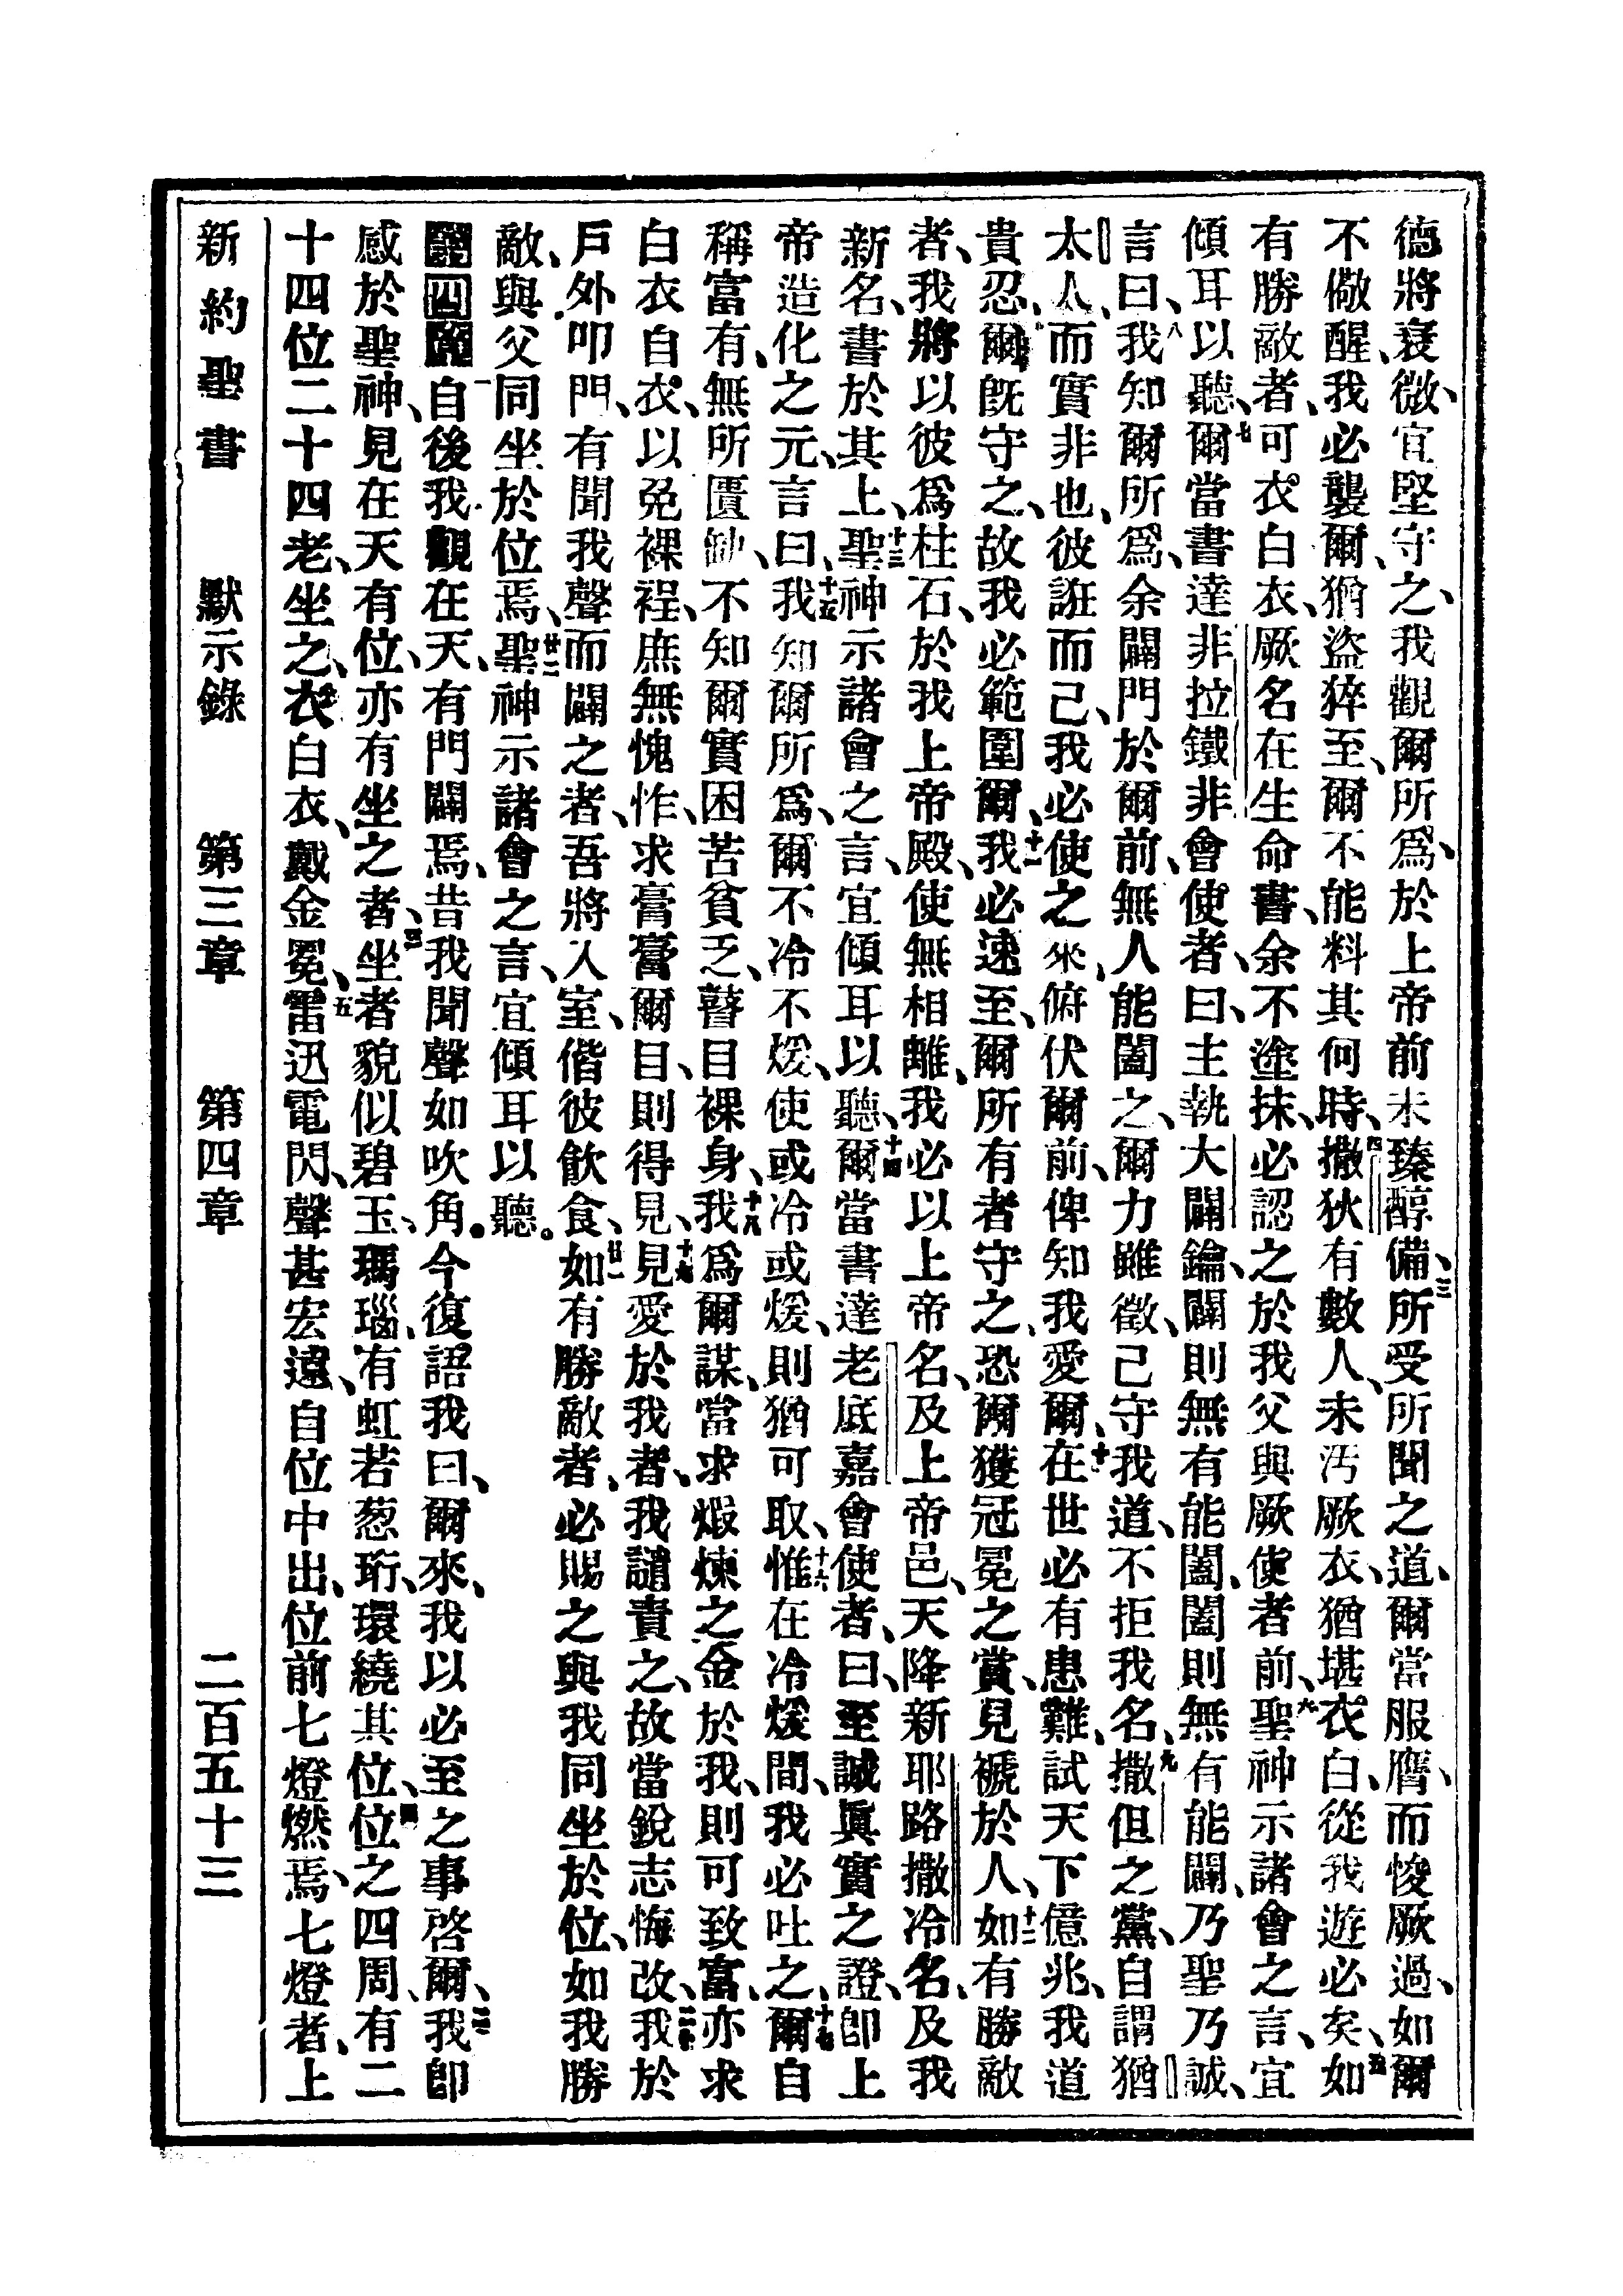 德將衰微、宜堅守之、我觀爾所爲、於上帝前未臻醇備、三所受所聞之道、爾當服膺、而悛厥過、如爾
不儆醒、我必襲爾、猶盜猝至、爾不能料其何時、四撒狄有數人、未汚厥衣、猶堪衣白、從我遊必矣、五如
有勝敵者、可衣白衣、厥名在生命書、余不塗抹、必認之於我父與厥使者前、六聖神示諸會之言、宜
傾耳以聽、七爾當書達非拉鐵非會使者、曰、主執大闢鑰、闢則無有能闔、闔則無有能闢、乃聖乃誠、
言曰、八我知爾所爲、余闢門於爾前、無人能闔之、爾力雖微、己守我道、不拒我名、九撒但之黨、自謂猶
太人、而實非也、彼誑而己、我必使之來、俯伏爾前、俾知我愛爾、十在世必有患難、試天下億兆、我道
貴忍、爾旣守之、故我必範圍爾、十一我必速至、爾所有者守之、恐爾獲冠冕之賞、見褫於人、十二如有勝敵
者、我將以彼爲柱石、於我上帝殿、使無相離、我必以上帝名、及上帝邑、天降新耶路撒冷名、及我
新名、書於其上、十三聖神示諸會之言、宜傾耳以聽、十四爾當書達老底嘉會使者、曰、至誠眞實之證、卽上
帝造化之元、言曰、十五我知爾所爲、爾不冷不煖、使或冷或煖、則猶可取、十六惟在冷煖間、我必吐之、十七爾自
稱富有、無所匱缺、不知爾實困苦貧乏、瞽目裸身、十八我爲爾謀、當求煆煉之金於我、則可致富、亦求
白衣自衣、以免裸裎、庶無愧怍、求膏膏爾目、則得見、十九見愛於我者、我譴責之、故當銳志悔改、二十我於
戶外叩門、有聞我聲而闢之者、吾將入室、偕彼飮食、廿一如有勝敵者、必賜之與我同坐於位、如我勝
敵、與父同坐於位焉、廿二聖神示諸會之言、宜傾耳以聽。
第四章一自後我觀在天、有門闢焉、昔我聞聲如吹角、今復語我曰、爾來、我以必至之事啓爾、二我卽
感於聖神、見在天有位、亦有坐之者、三坐者貌似碧玉、瑪瑙、有虹若葱珩、環繞其位、四位之四周、有二
十四位、二十四老、坐之、衣白衣、戴金冕、五雷迅電閃、聲甚宏遠、自位中出、位前七燈燃焉、七燈者、上
新約聖書 默示錄 第三章 第四章 二百五十三